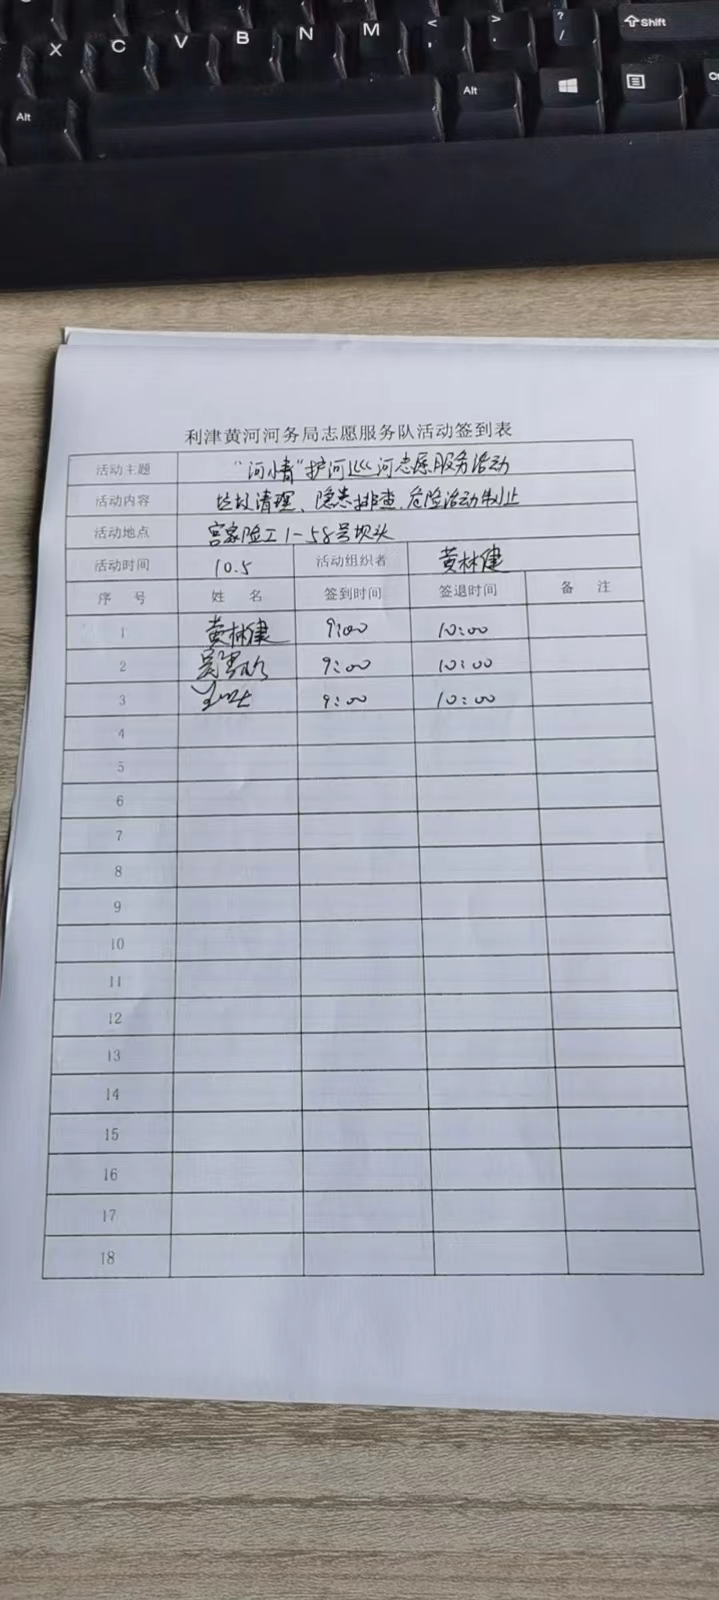 X C V B N M < , > . ? / Shift
Alt Alt
利津黄河河务局志愿服务队活动签到表
活动主题 "河小青"护河巡河志愿服务活动
活动内容 垃圾清理、隐患排查、危险活动制止
活动地点 宫家险工1-58号坝头
活动时间 10.5 活动组织者 黄林健
序 号 姓 名 签到时间 签退时间 备 注
1 黄林健 9:00 10:00
2 9:00 10:00
3 9:00 10:00
4
5
6
7
8
9
10
11
12
13
14
15
16
17
18